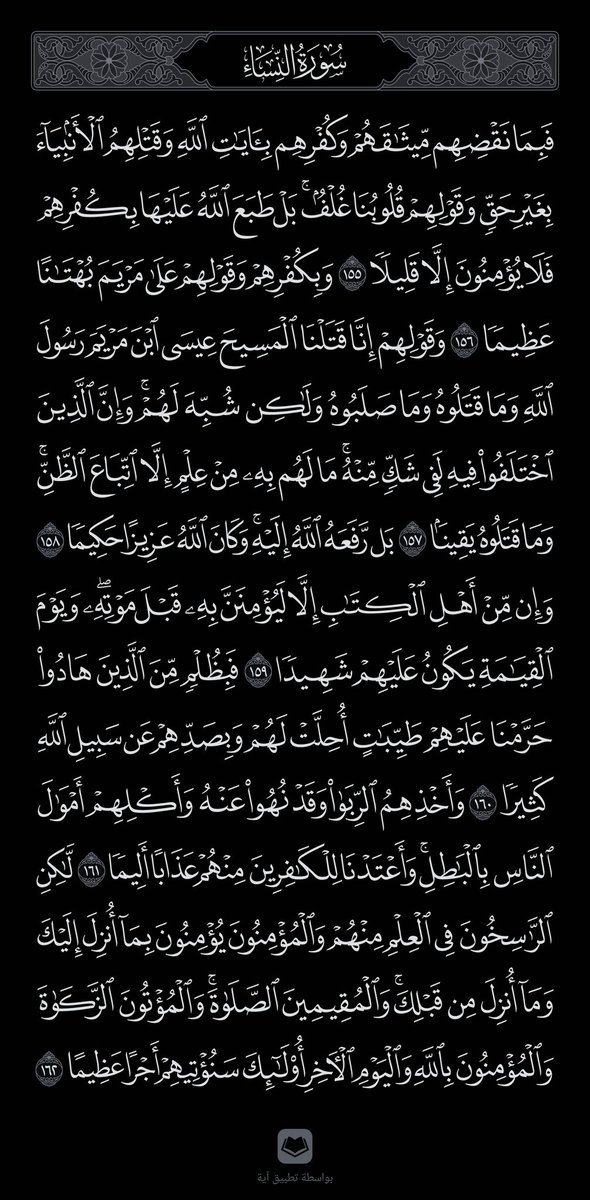 سُورَةُ النِّسَاءِ
فَبِمَا نَقۡضِهِم مِّيثَٰقَهُمۡ وَكُفۡرِهِم بِـَٔايَٰتِ ٱللَّهِ وَقَتۡلِهِمُ ٱلۡأَنۢبِيَآءَ
بِغَيۡرِ حَقّٖ وَقَوۡلِهِمۡ قُلُوبُنَا غُلۡفُۢۚ بَلۡ طَبَعَ ٱللَّهُ عَلَيۡهَا بِكُفۡرِهِمۡ
فَلَا يُؤۡمِنُونَ إِلَّا قَلِيلٗا ١٥٥ وَبِكُفۡرِهِمۡ وَقَوۡلِهِمۡ عَلَىٰ مَرۡيَمَ بُهۡتَٰنًا
عَظِيمٗا ١٥٦ وَقَوۡلِهِمۡ إِنَّا قَتَلۡنَا ٱلۡمَسِيحَ عِيسَى ٱبۡنَ مَرۡيَمَ رَسُولَ
ٱللَّهِ وَمَا قَتَلُوهُ وَمَا صَلَبُوهُ وَلَٰكِن شُبِّهَ لَهُمۡۚ وَإِنَّ ٱلَّذِينَ
ٱخۡتَلَفُواْ فِيهِ لَفِي شَكّٖ مِّنۡهُۚ مَا لَهُم بِهِۦ مِنۡ عِلۡمٍ إِلَّا ٱتِّبَاعَ ٱلظَّنِّۚ
وَمَا قَتَلُوهُ يَقِينَۢا ١٥٧ بَل رَّفَعَهُ ٱللَّهُ إِلَيۡهِۚ وَكَانَ ٱللَّهُ عَزِيزًا حَكِيمٗا ١٥٨
وَإِن مِّنۡ أَهۡلِ ٱلۡكِتَٰبِ إِلَّا لَيُؤۡمِنَنَّ بِهِۦ قَبۡلَ مَوۡتِهِۦۖ وَيَوۡمَ
ٱلۡقِيَٰمَةِ يَكُونُ عَلَيۡهِمۡ شَهِيدٗا ١٥٩ فَبِظُلۡمٖ مِّنَ ٱلَّذِينَ هَادُواْ
حَرَّمۡنَا عَلَيۡهِمۡ طَيِّبَٰتٍ أُحِلَّتۡ لَهُمۡ وَبِصَدِّهِمۡ عَن سَبِيلِ ٱللَّهِ
كَثِيرٗا ١٦٠ وَأَخۡذِهِمُ ٱلرِّبَوٰاْ وَقَدۡ نُهُواْ عَنۡهُ وَأَكۡلِهِمۡ أَمۡوَٰلَ
ٱلنَّاسِ بِٱلۡبَٰطِلِۚ وَأَعۡتَدۡنَا لِلۡكَٰفِرِينَ مِنۡهُمۡ عَذَابًا أَلِيمٗا ١٦١ لَّٰكِنِ
ٱلرَّٰسِخُونَ فِي ٱلۡعِلۡمِ مِنۡهُمۡ وَٱلۡمُؤۡمِنُونَ يُؤۡمِنُونَ بِمَآ أُنزِلَ إِلَيۡكَ
وَمَآ أُنزِلَ مِن قَبۡلِكَۚ وَٱلۡمُقِيمِينَ ٱلصَّلَوٰةَۚ وَٱلۡمُؤۡتُونَ ٱلزَّكَوٰةَ
وَٱلۡمُؤۡمِنُونَ بِٱللَّهِ وَٱلۡيَوۡمِ ٱلۡأٓخِرِ أُوْلَٰٓئِكَ سَنُؤۡتِيهِمۡ أَجۡرًا عَظِيمًا ١٦٢
بواسطة تطبيق آية